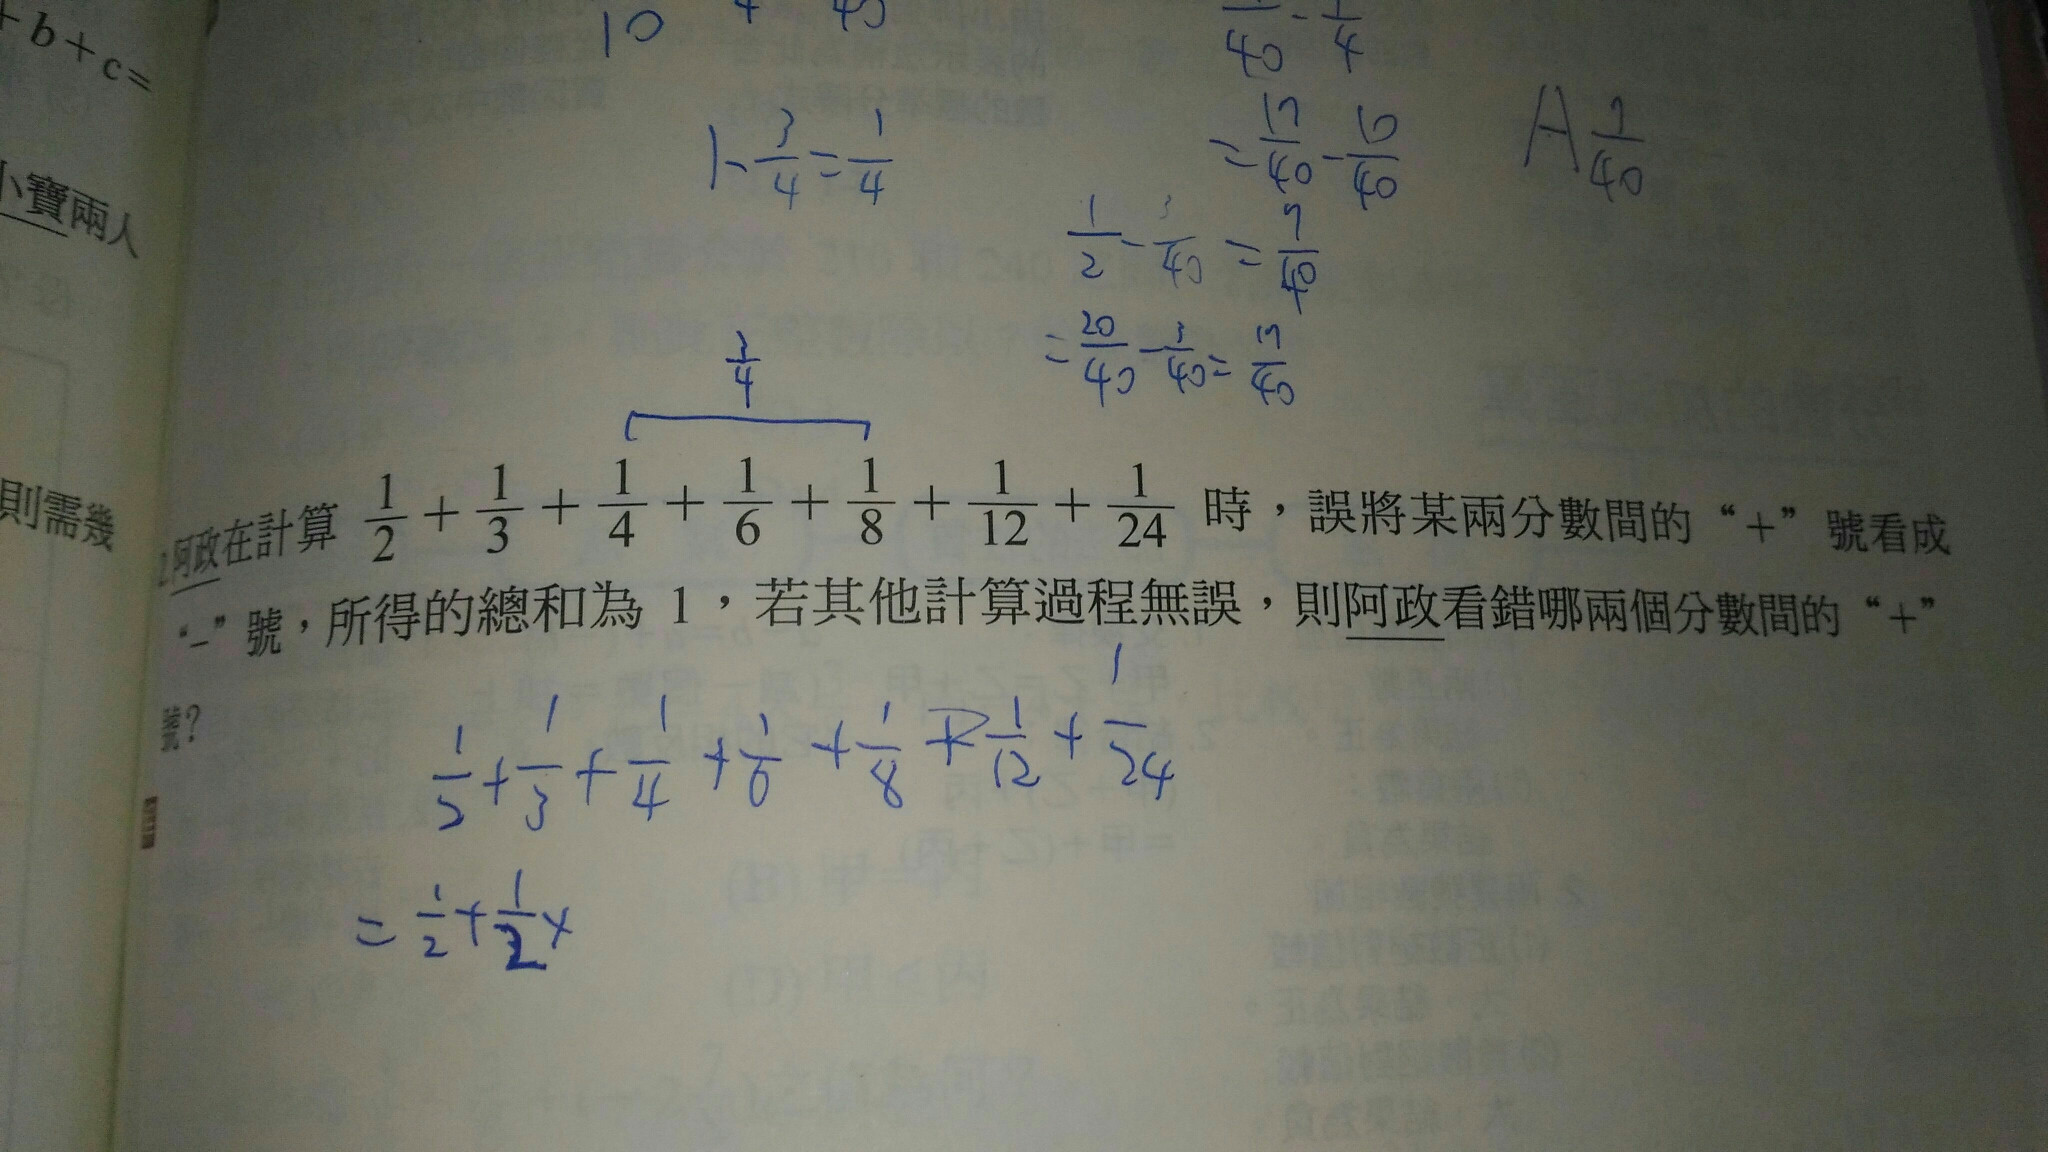 +b+c=
小寶兩人
則需幾
10 + 40
40 - 1/4
1 - 3/4 = 1/4
= 17/40 - 10/40
A 7/40
1/2 - 3/40 = 7/40
= 20/40 - 3/40 = 17/40
3/4
2.阿政在計算 1/2 + 1/3 + 1/4 + 1/6 + 1/8 + 1/12 + 1/24 時，誤將某兩分數間的“+”號看成
“−”號，所得的總和為 1，若其他計算過程無誤，則阿政看錯哪兩個分數間的“+”
號？
1/2 + 1/3 + 1/4 + 1/6 + 1/8 + 1/12 + 1/24
= 1/2 + 1/2 +